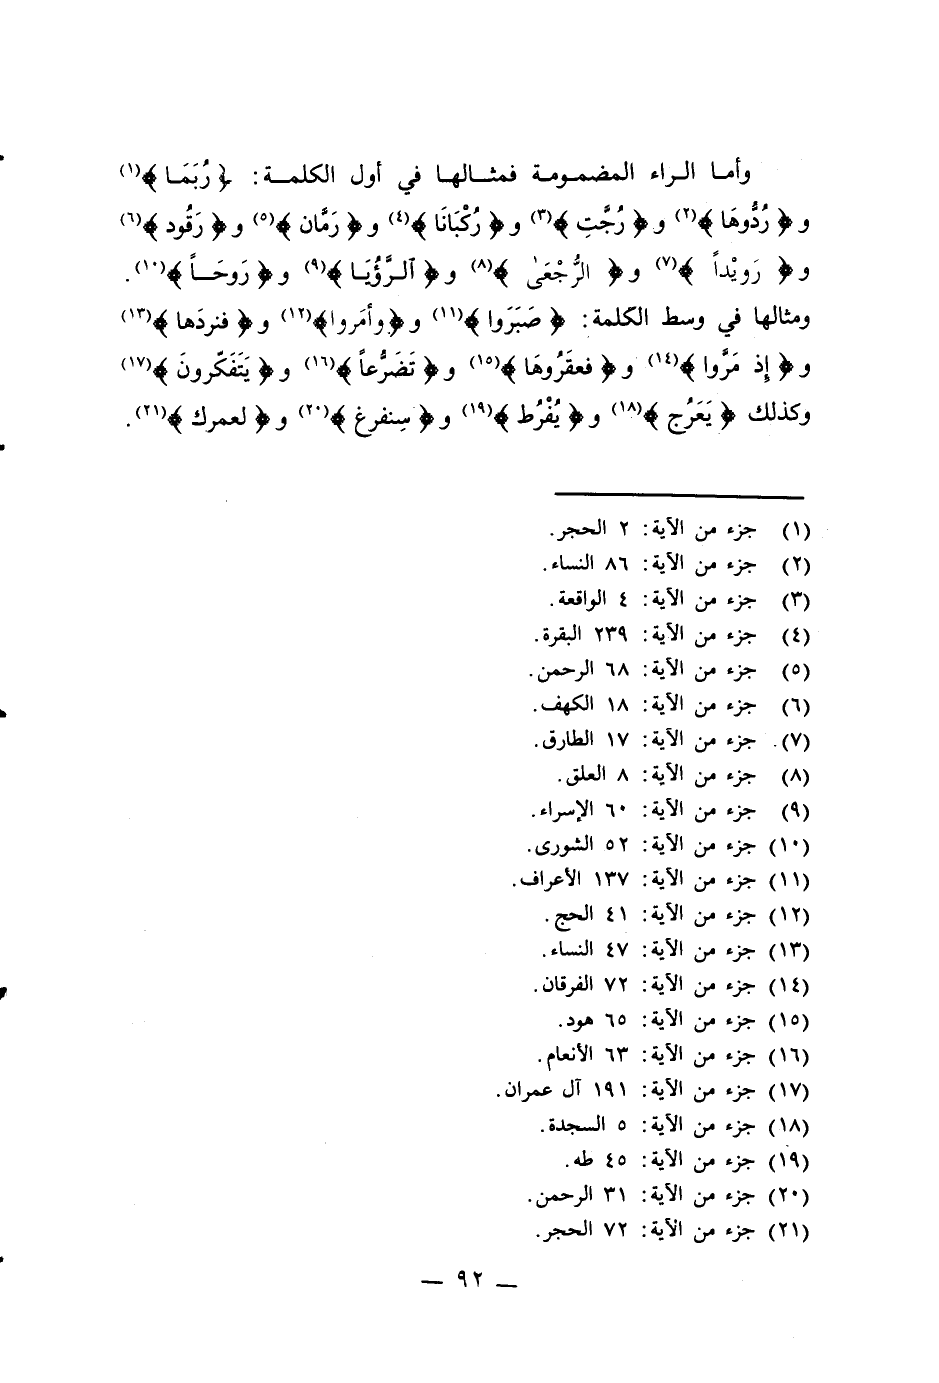 وأما الراء المضمومة فمثالها في أول الكلمة: ﴿ رُبَمَا ﴾(١)
و ﴿ رُدُّوهَا ﴾(٢) و ﴿ رُجَّتِ ﴾(٣) و ﴿ رُكْبَانَا ﴾(٤) و ﴿ رَمَّان ﴾(٥) و ﴿ رَقُود ﴾(٦)
و ﴿ رَويْداً ﴾(٧) و ﴿ الرُّجْعَىٰ ﴾(٨) و ﴿ ٱلرَّؤْيَا ﴾(٩) و ﴿ رَوحَاً ﴾(١٠).
ومثالها في وسط الكلمة: ﴿ صَبَرَوا ﴾(١١) و ﴿وأمَروا﴾(١٢) و ﴿ فنردَها ﴾(١٣)
و ﴿ إِذ مَرَّوا ﴾(١٤) و ﴿ فعقَرُوهَا ﴾(١٥) و ﴿ تَضَرُّعاً ﴾(١٦) و ﴿ يَتَفَكّرونَ ﴾(١٧)
وكذلك ﴿ يَعَرُج ﴾(١٨) و ﴿ يُفْرُط ﴾(١٩) و ﴿ سِنفرغ ﴾(٢٠) و ﴿ لعمرك ﴾(٢١).
(١) جزء من الآية: ٢ الحجر.
(٢) جزء من الآية: ٨٦ النساء.
(٣) جزء من الآية: ٤ الواقعة.
(٤) جزء من الآية: ٢٣٩ البقرة.
(٥) جزء من الآية: ٦٨ الرحمن.
(٦) جزء من الآية: ١٨ الكهف.
(٧). جزء من الآية: ١٧ الطارق.
(٨) جزء من الآية: ٨ العلق.
(٩) جزء من الآية: ٦٠ الإسراء.
(١٠) جزء من الآية: ٥٢ الشورى.
(١١) جزء من الآية: ١٣٧ الأعراف.
(١٢) جزء من الآية: ٤١ الحج.
(١٣) جزء من الآية: ٤٧ النساء.
(١٤) جزء من الآية: ٧٢ الفرقان.
(١٥) جزء من الآية: ٦٥ هود.
(١٦) جزء من الآية: ٦٣ الأنعام.
(١٧) جزء من الآية: ١٩١ آل عمران.
(١٨) جزء من الآية: ٥ السجدة.
(١٩) جزء من الآية: ٤٥ طه.
(٢٠) جزء من الآية: ٣١ الرحمن.
(٢١) جزء من الآية: ٧٢ الحجر.
— ٩٢ —